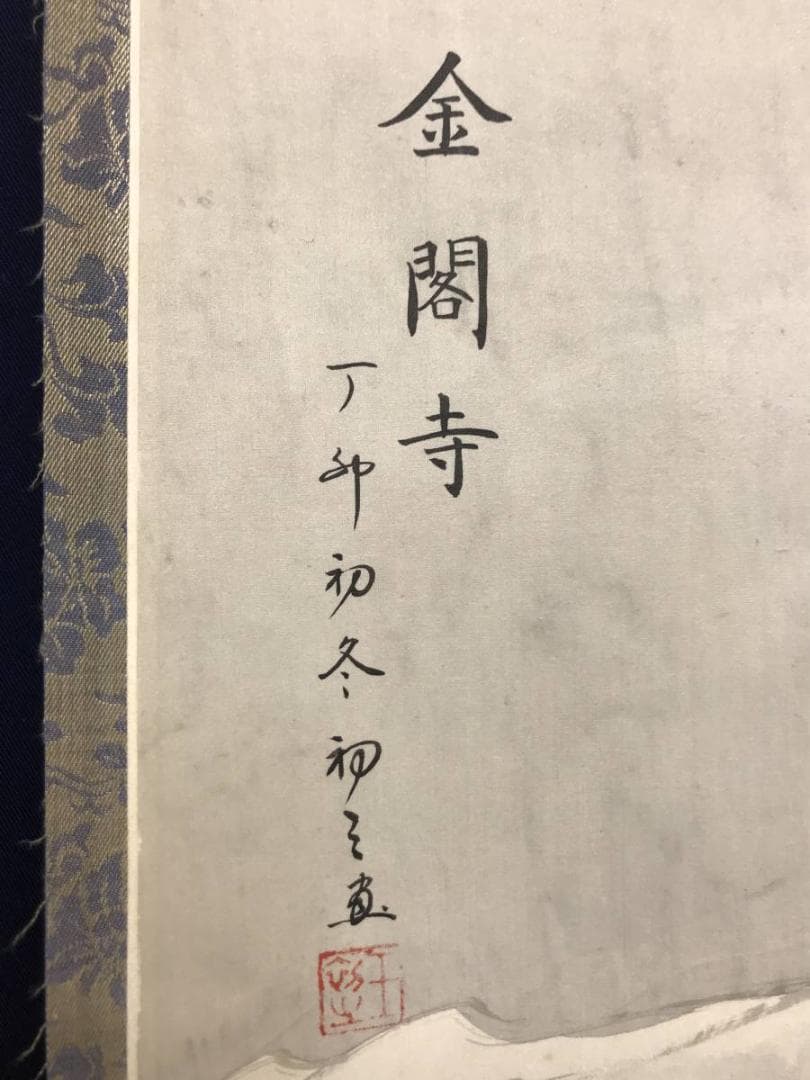 金閣寺
丁卯初冬初之画